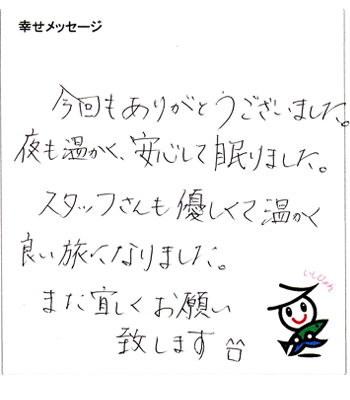 幸せメッセージ
今回もありがとうございました。
夜も温かく、安心して眠りました。
スタッフさんも優しくて温かく
良い旅になりました。
また宜しくお願い
致します